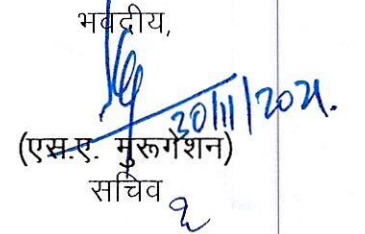 भवदीय,
30/11/2021.
(एस.ए. मुरूगेशन)
सचिव